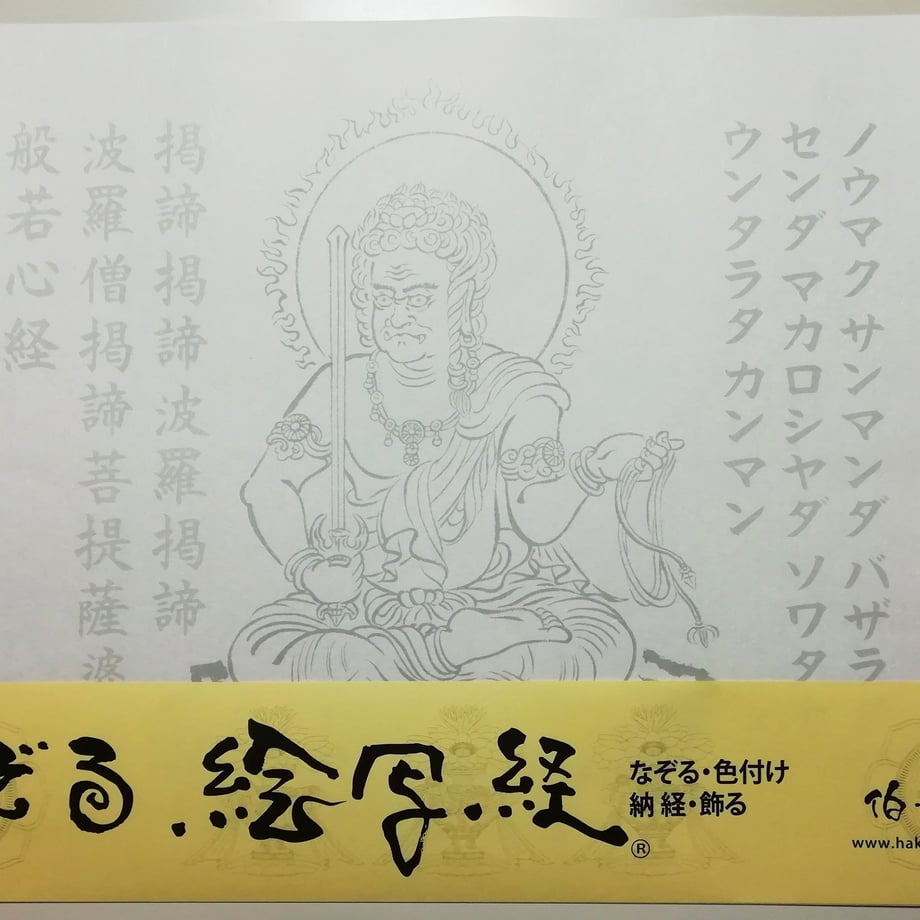 ノウマク サンマンダ バザラ
センダ マカロシヤダ ソワタ
ウンタラタ カンマン
掲諦掲諦波羅掲諦
波羅僧掲諦菩提薩婆
般若心経
ぞる・絵写経®
なぞる・色付け
納経・飾る
伯
www.hak